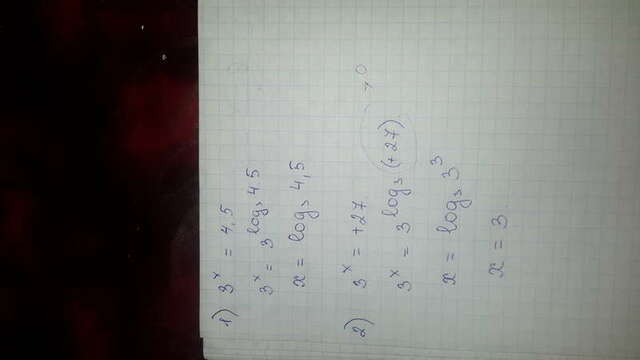 1) 3^x = 4,5
3^x = 3^log₃ 4 5
x = log₃ 4,5
2) 3^x = +27
3^x = 3^log₃ (+27) → 0
x = log₃ 3^3
x = 3